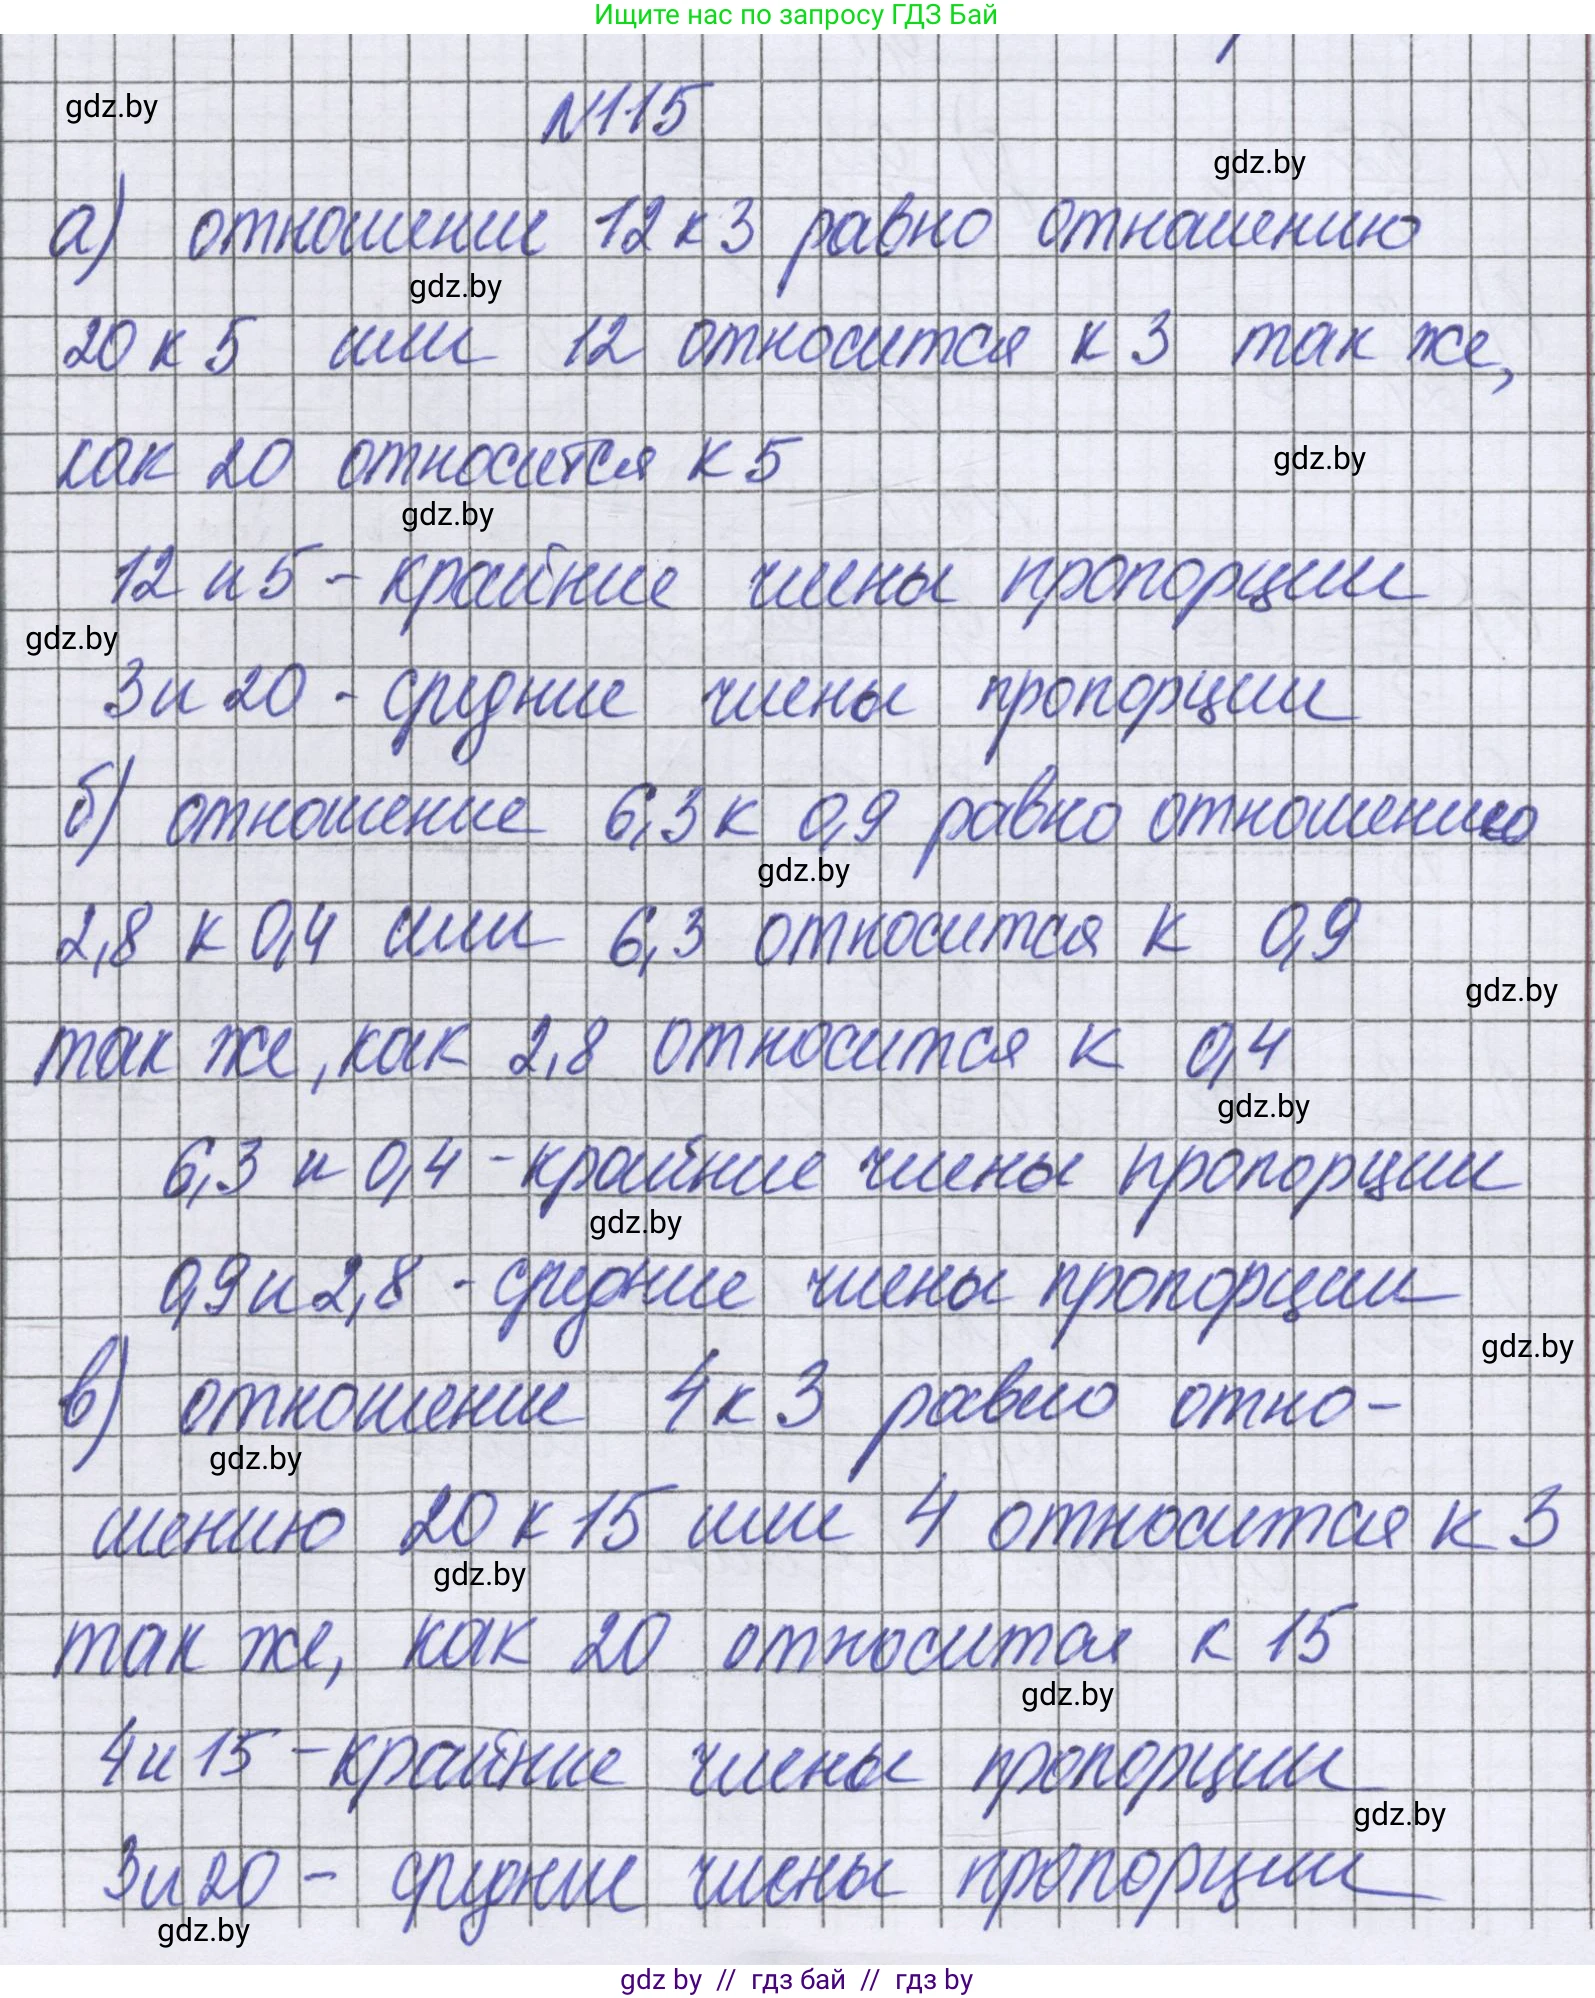 Ищите нас по запросу ГДЗ Бай
gdz.by
№115
gdz.by
а) отношение 12 к 3 равно отношению
gdz.by
20 к 5 или 12 относится к 3 так же,
как 20 относится к 5
gdz.by
gdz.by
12 и 5 - крайние члены пропорции
gdz.by
3 и 20 - средние члены пропорции
б) отношение 6,3 к 0,9 равно отношению
gdz.by
2,8 к 0,4 или 6,3 относится к 0,9
gdz.by
так же, как 2,8 относится к 0,4
gdz.by
6,3 и 0,4 - крайние члены пропорции
gdz.by
0,9 и 2,8 - средние члены пропорции
gdz.by
в) отношение 4 к 3 равно отно-
gdz.by
шению 20 к 15 или 4 относится к 3
gdz.by
так же, как 20 относится к 15
gdz.by
4 и 15 - крайние члены пропорции
gdz.by
3 и 20 - средние члены пропорции
gdz.by
gdz by // гдз бай // гдз by